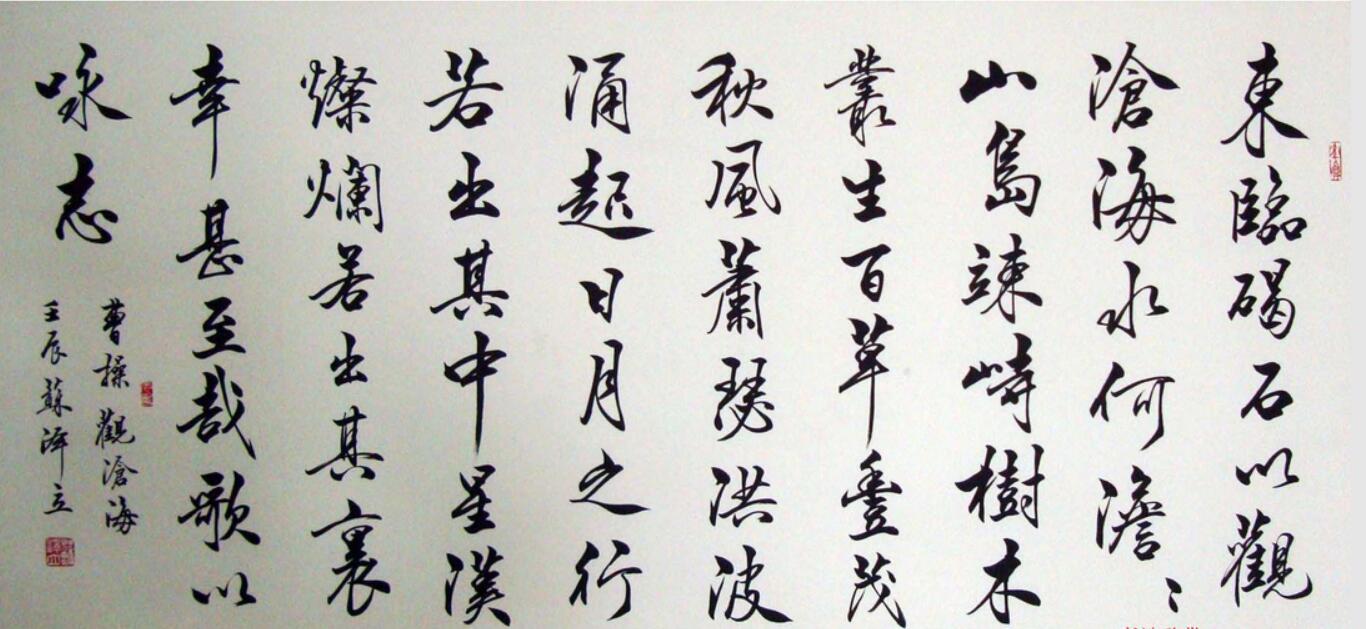 東臨碣石以觀
滄海水何澹〻
山島竦峙樹木
叢生百草豊茂
秋風蕭瑟洪波
涌起日月之行
若出其中星漢
燦爛若出其裏
幸甚至哉歌以
咏志
曹操觀滄海
壬辰蘇澤立